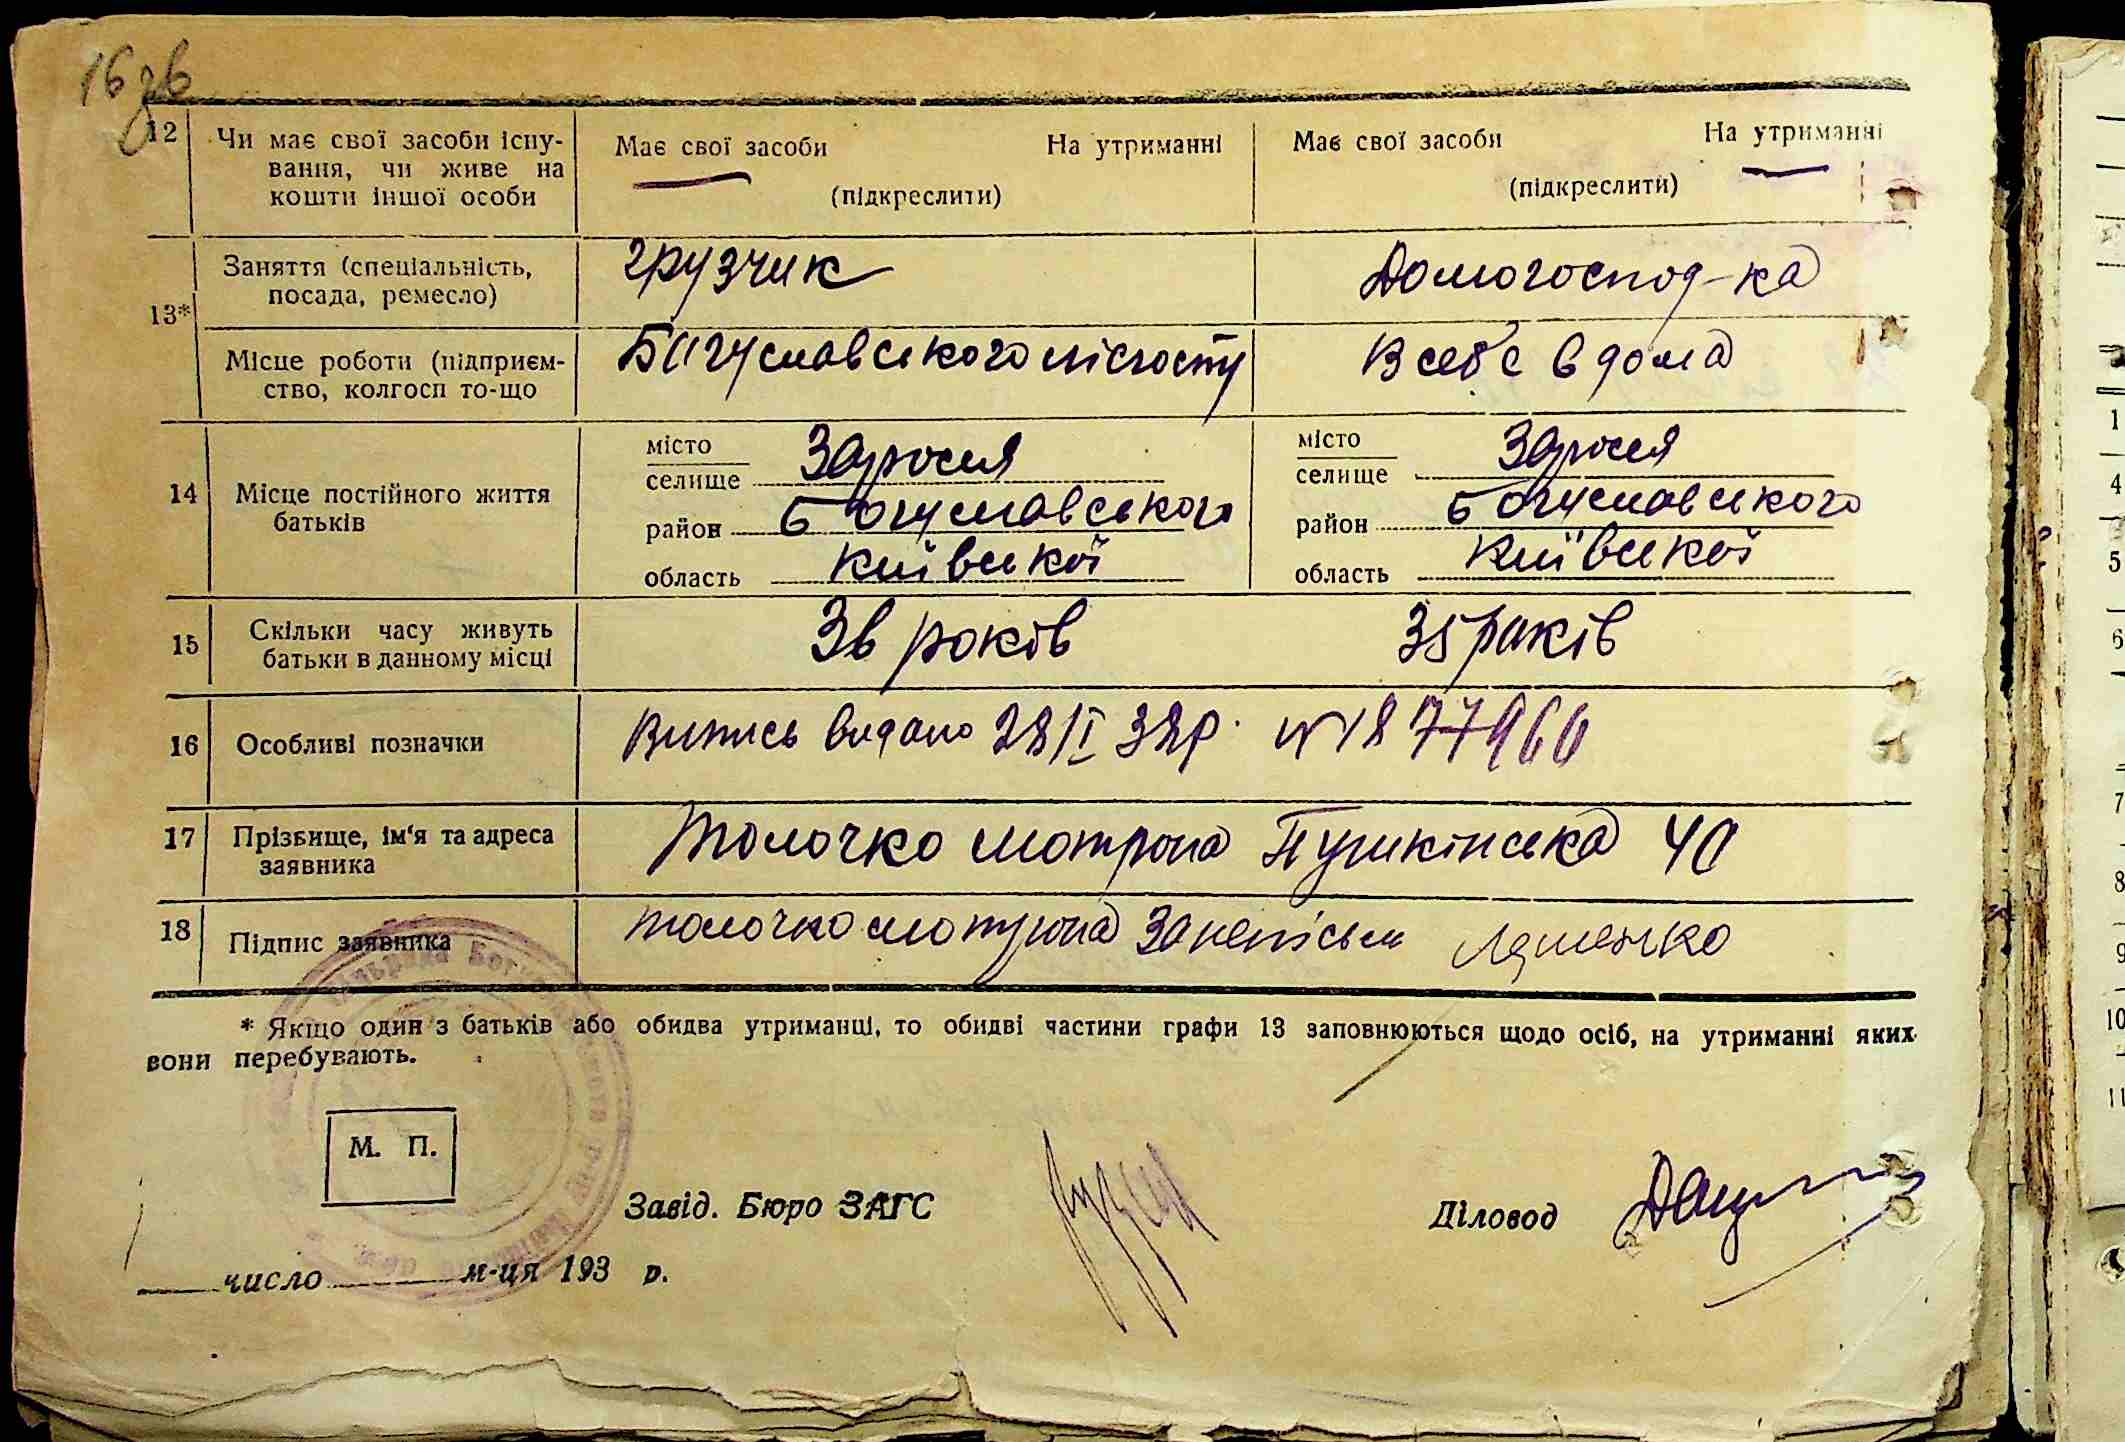 16 зв
12 Чи має свої засоби існу-
вання, чи живе на
кошти іншої особи
Має свої засоби На утриманні
(підкреслити)
Має свої засоби На утриманні
(підкреслити)
13*
Заняття (спеціальність,
посада, ремесло)
грузчик
Домогоспод-ка
Місце роботи (підприєм-
ство, колгосп то-що
Богуславського
В себе в дома
14 Місце постійного життя
батьків
місто
селище Заросся
район Богуславського
область Київської
місто
селище Заросся
район Богуславського
область Київської
15 Скільки часу живуть
батьки в данному місці
36 років 35 років
16 Особливі позначки
Випись видано 28/I 38р. № 1877966
17 Прізвище, ім'я та адреса
заявника
Толочко Мотрона Пушкінська 40
18 Підпис заявника
Толочко Мотрона
* Якщо один з батьків або обидва утриманці, то обидві частини графи 13 заповнюються щодо осіб, на утриманні яких
вони перебувають.
М. П.
Завід. Бюро ЗАГС
Діловод
число м-ця 193 р.